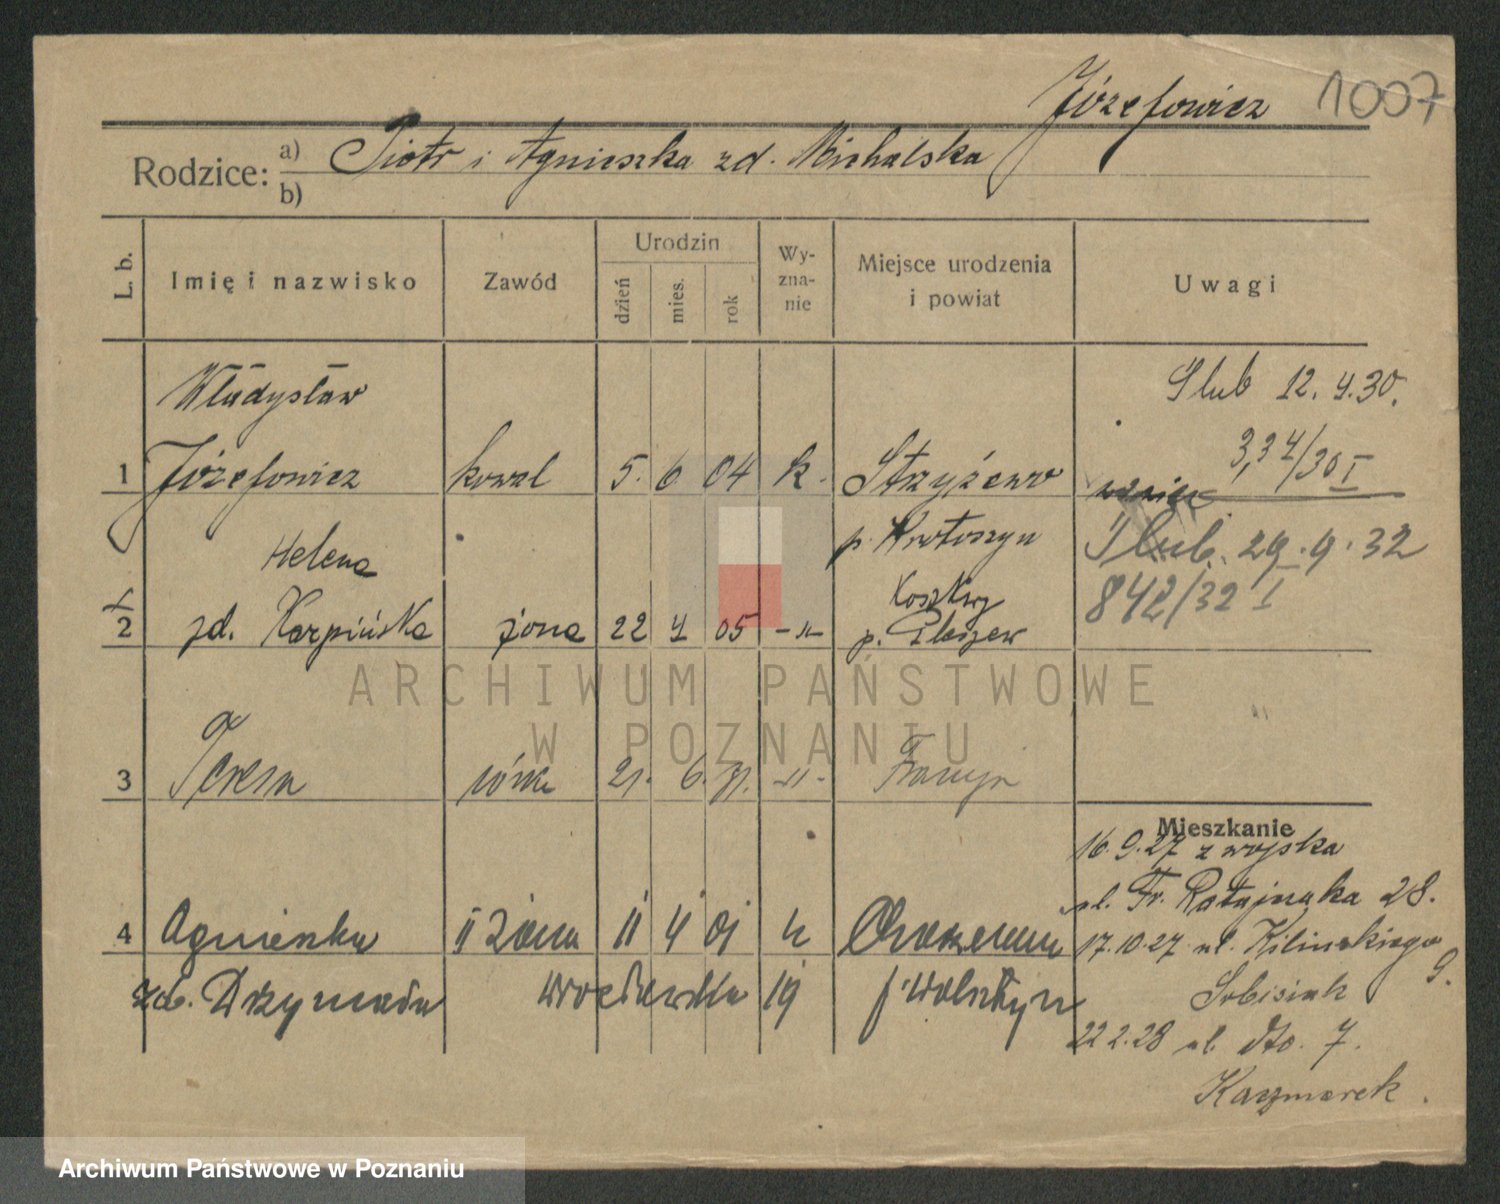 Józefowicz 1007
Rodzice: a) Piotr i Agnieszka zd. Michalska
b)
L. b. Imię i nazwisko Zawód Urodzin dzień mies. rok Wy-zna-nie Miejsce urodzenia i powiat Uwagi
Władysław Ślub 12.4.30.
334/30 I
1 Józefowicz kowal 5. 6 04 k. Strzyżewo
p. Krotoszyn Ślub. 29.9.32
Helena
842/32 I
2 zd. Karpińska żona 22 4 05 -„- p. Pleszew
ARCHIWUM PAŃSTWOWE
W POZNANIU
3 Teresa córka 21. 6. 31. -„- Francja
Mieszkanie
16.9.27 z wojska
ul. Fr. Ratajczaka 28.
4 Agnieszka II żona 11 4 01 k
17.10.27 ul. Kilińskiego 9.
zd. Drzymała Wrocławska 19 p. Wolsztyn
22.2.28 ul. dto. 7.
Kaczmarek.
Archiwum Państwowe w Poznaniu